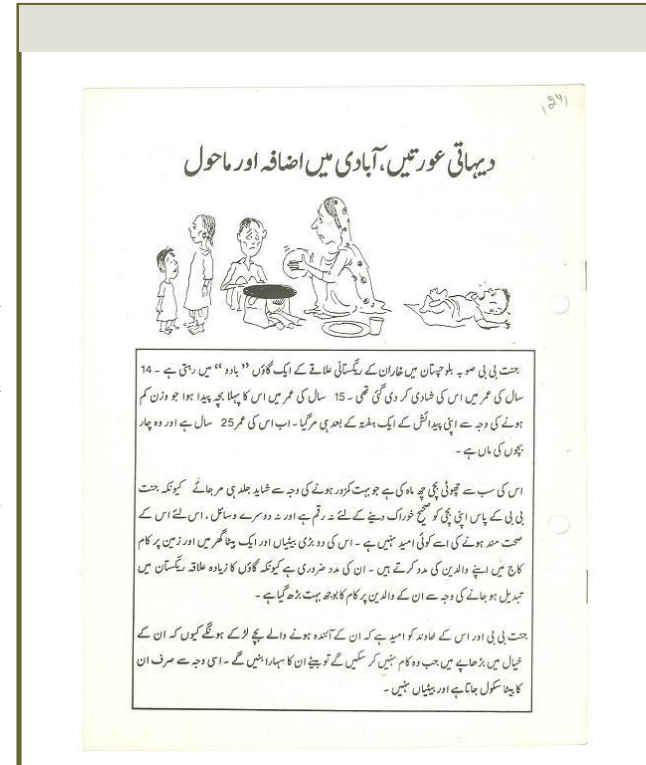 دیہاتی عورتیں، آبادی میں اضافہ اور ماحول
جنت بی بی صوبہ بلوچستان میں خاران کے ریگستانی علاقے کے ایک گاؤں “بادو” میں رہتی ہے ۔ 14
سال کی عمر میں اس کی شادی کر دی گئی تھی ۔ 15 سال کی عمر میں اس کا پہلا بچہ پیدا ہوا جو وزن کم
ہونے کی وجہ سے اپنی پیدائش کے ایک ہفتہ کے بعد ہی مر گیا ۔ اب اس کی عمر 25 سال ہے اور وہ چار
بچوں کی ماں ہے ۔
اس کی سب سے چھوٹی بچی چھ ماہ کی ہے جو بہت کمزور ہونے کی وجہ سے شاید جلد ہی مر جائے کیونکہ جنت
بی بی کے پاس اپنی بچی کو صحیح خوراک دینے کے لئے نہ رقم ہے اور نہ دوسرے وسائل ، اس لئے اس کے
صحت مند ہونے کی اسے کوئی امید نہیں ہے ۔ اس کی دو بڑی بیٹیاں اور ایک بیٹا گھر میں اور زمین پر کام
کاج میں اپنے والدین کی مدد کرتے ہیں ۔ ان کی مدد ضروری ہے کیونکہ گاؤں کا زیادہ علاقہ ریگستان میں
تبدیل ہو جانے کی وجہ سے ان کے والدین پر کام کا بوجھ بہت بڑھ گیا ہے ۔
جنت بی بی اور اس کے خاوند کو امید ہے کہ ان کے آئندہ ہونے والے بچے لڑکے ہونگے کیوں کہ ان کے
خیال میں بڑھاپے میں جب وہ کام نہیں کر سکیں گے تو بیٹے ان کا سہارا بنیں گے ۔ اسی وجہ سے صرف ان
کا بیٹا سکول جاتا ہے اور بیٹیاں نہیں ۔